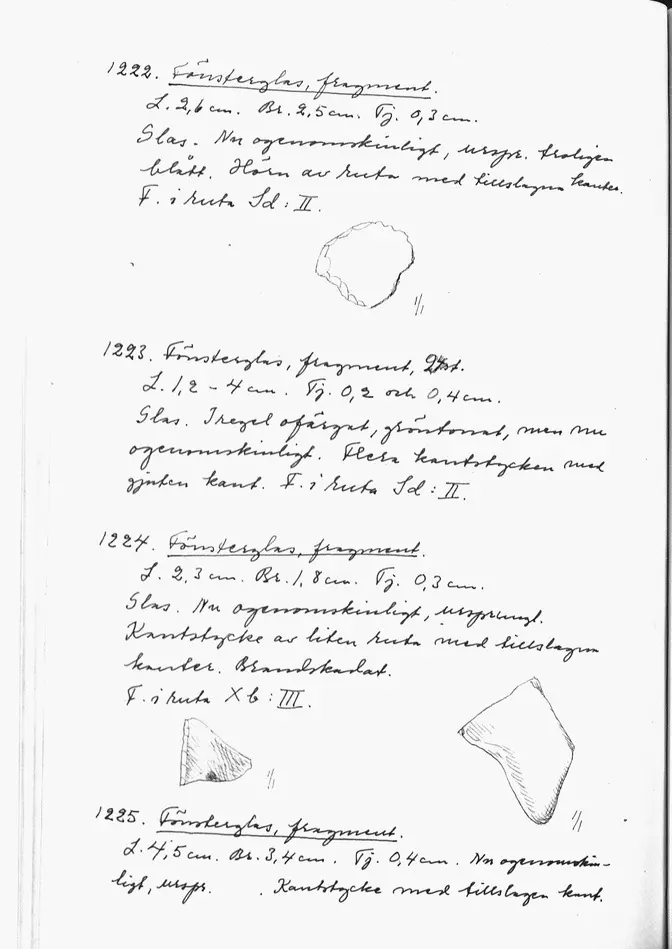 1222. Fönsterglas, fragment.
L. 2,6 cm. Br. 2,5 cm. Tj. 0,3 cm.
Glas. Nu ogenomskinligt, urspr. troligen
blått. Hörn av ruta med tillslagna kanter.
F. i ruta Sd: II.
1/1
1223. Fönsterglas, fragment, 24 st.
L. 1,2 – 4 cm. Tj. 0,2 och 0,4 cm.
Glas. I regel ofärgat, gröntonat, men nu
ogenomskinligt. Flera kantstycken med
gjuten kant. F. i ruta Sd: II.
1224. Fönsterglas, fragment.
L. 2,3 cm. Br. 1,8 cm. Tj. 0,3 cm.
Glas. Nu ogenomskinligt, ursprungl.
Kantstycke av liten ruta med tillslagna
kanter. Brandskadat.
F. i ruta Xb: III.
1/1
1/1
1225. Fönsterglas, fragment.
L. 4,5 cm. Br. 3,4 cm. Tj. 0,4 cm. Nu ogenomskin-
ligt, urspr. . Kantstycke med tillslagen kant.